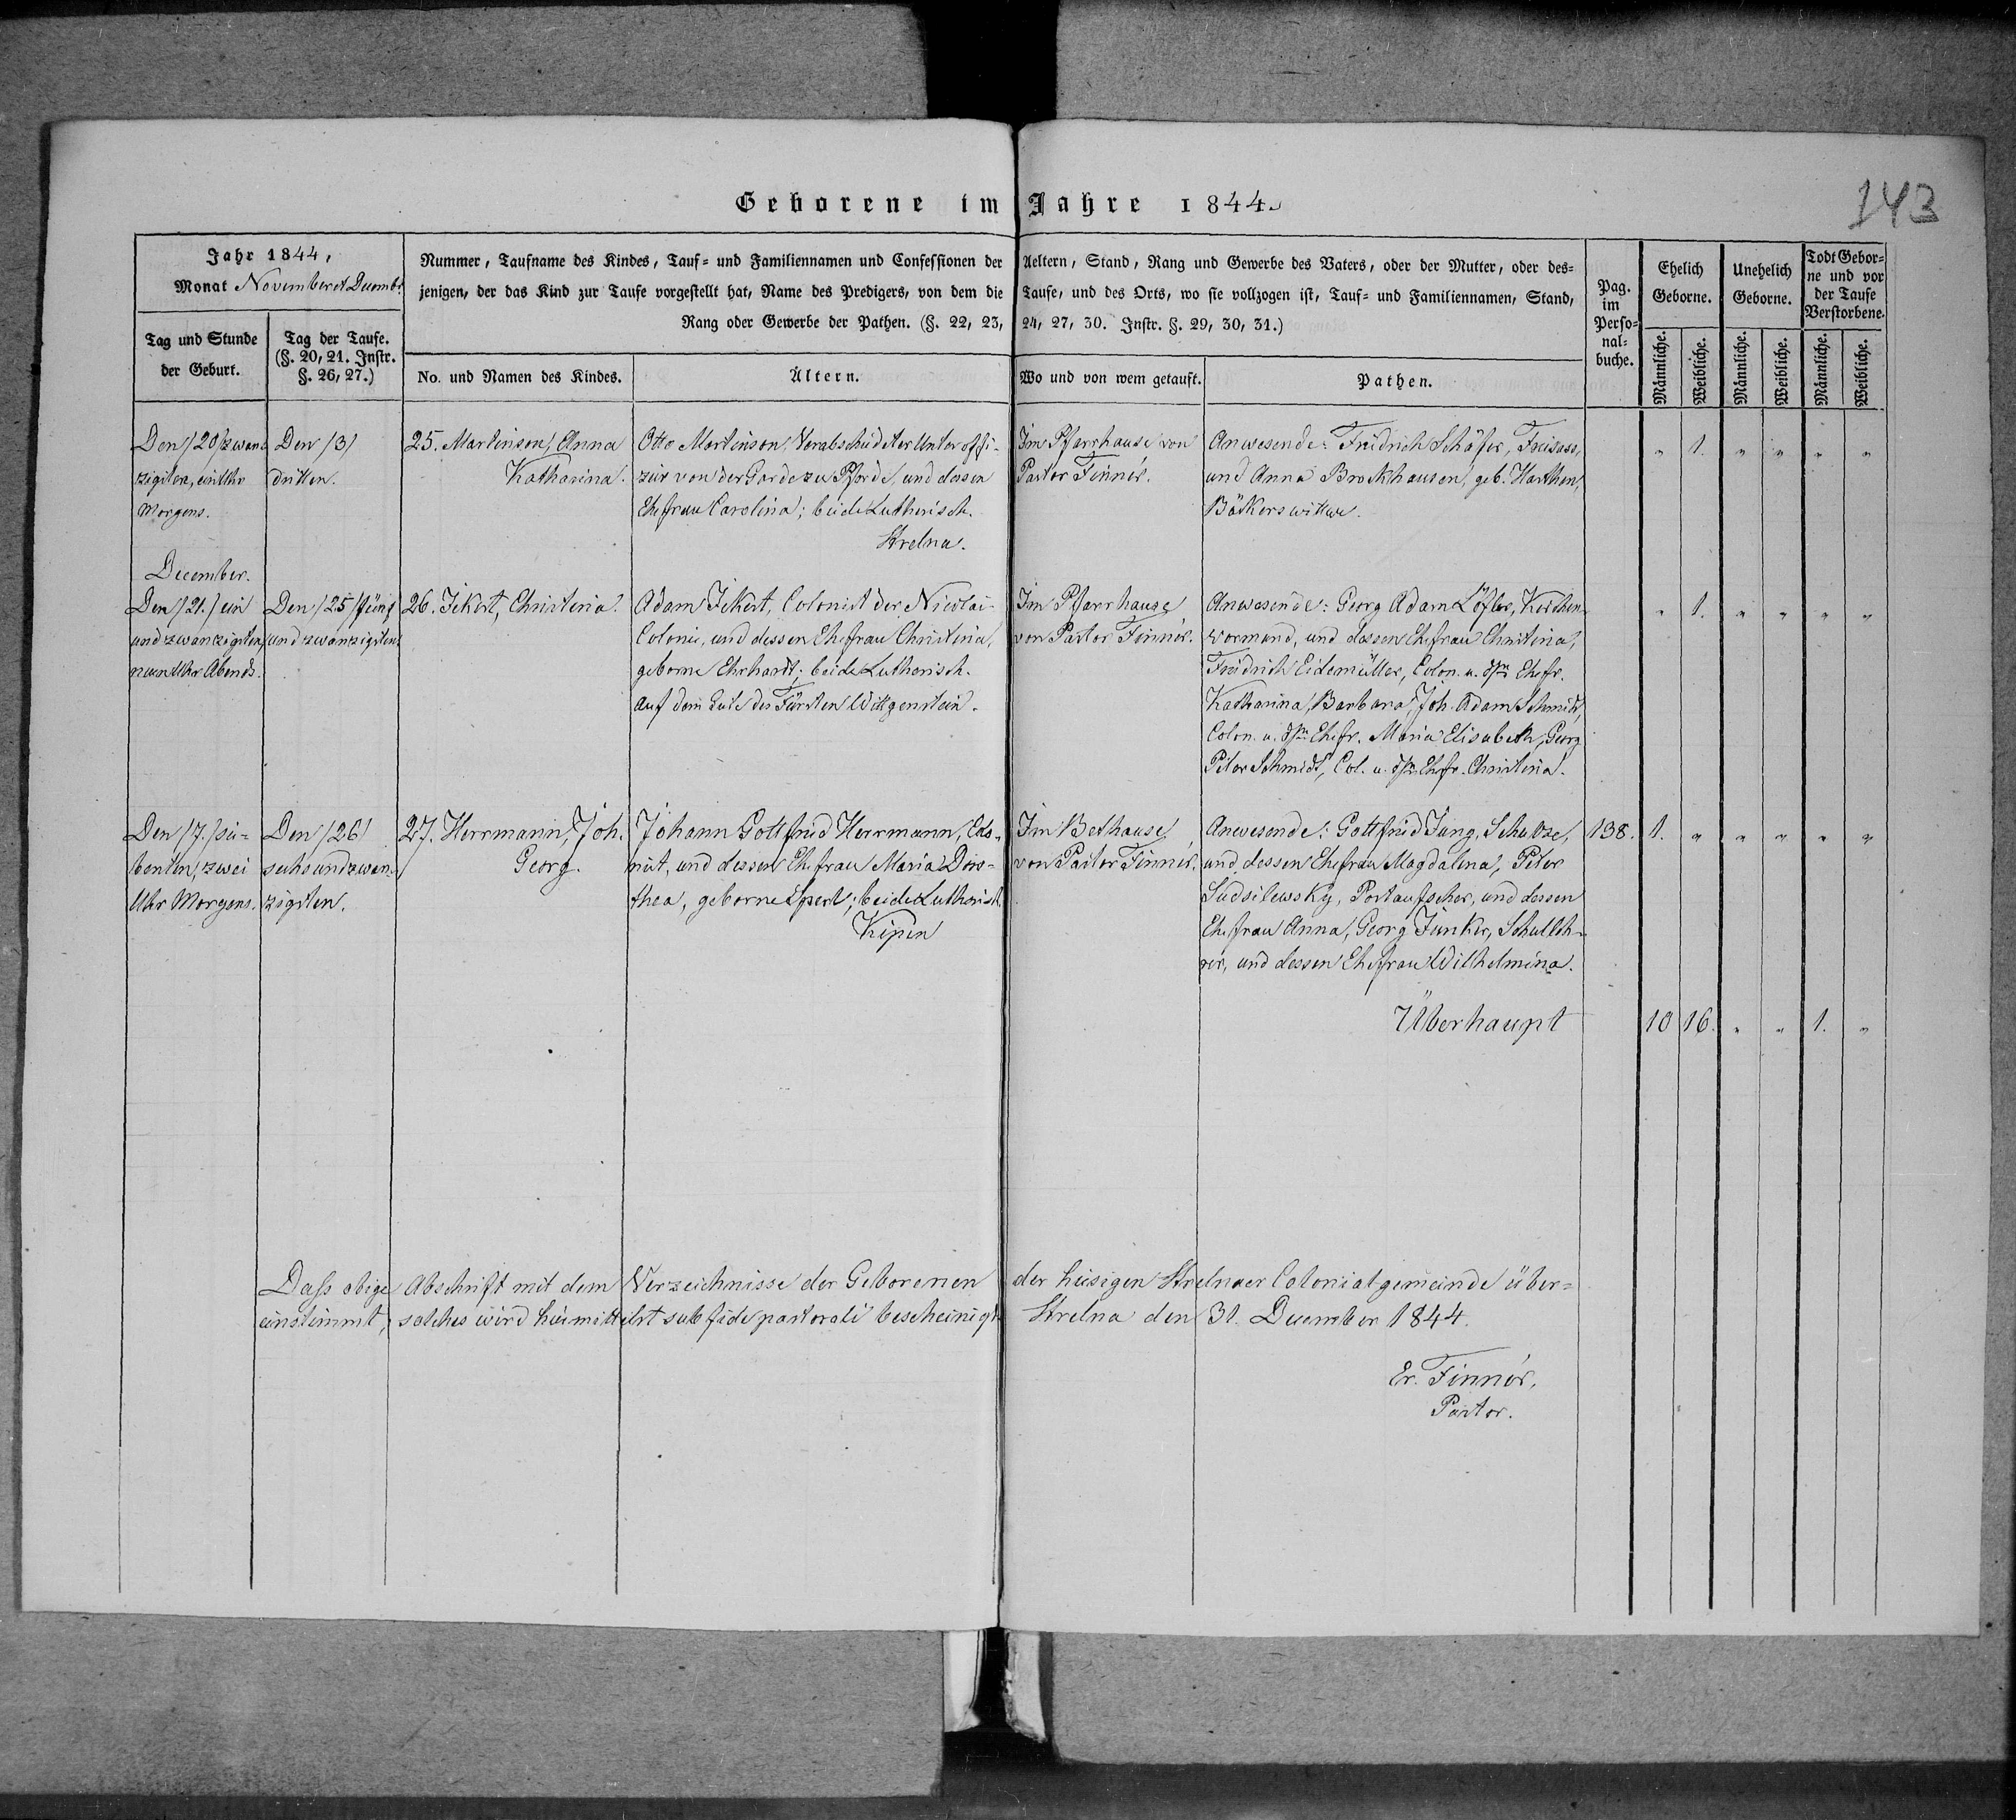 143
Geborene im Jahre 1844.
Jahr 1844,
Monat November et Decembr.
Tag und Stunde
der Geburt.
Tag der Taufe.
(§. 20, 21. Instr.
§. 26, 27.)
Nummer, Taufname des Kindes, Tauf- und Familiennamen und Confessionen der Aeltern, Stand, Rang und Gewerbe des Vaters, oder der Mutter, oder des-
jenigen, der das Kind zur Taufe vorgestellt hat, Name des Predigers, von dem die Taufe, und des Orts, wo sie vollzogen ist, Tauf- und Familiennamen, Stand,
Rang oder Gewerbe der Pathen. (§. 22, 23, 24, 27, 30. Instr. §. 29, 30, 31.)
No. und Namen des Kindes.
Ältern.
Wo und von wem getauft.
Pathen.
Pag.
im
Perso-
nal-
buche.
Ehelich
Geborne.
Unehelich
Geborne.
Todt Gebor-
ne und vor
der Taufe
Verstorbene.
Männliche.
Weibliche.
Männliche.
Weibliche.
Männliche.
Weibliche.
Den /20/ zwan-
zigsten, ein Uhr
Morgens.
Den /3/
dritten.
25. Martinson, Anna
Katharina.
Otto Martinson, Verabschiedeter Unteroffi-
zier von der Garde zu Pferde, und dessen
Ehefrau Carolina; beide Lutherisch.
Strelna.
Im Pfarrhause von
Pastor Finnér.
Anwesende: Friedrich Schäfer,
und Anna Brockhausen, geb. Harthen,
Bäkerswittwe.
" 1. " " " "
December.
Den /21./ ein
und zwanzigsten,
neun Uhr Abends.
Den /25/ fünf
und zwanzigsten.
26. Ikert, Christina.
Adam Ikert, Colonist der Nicolai-
Colonie, und dessen Ehefrau Christina,
geborne Ehrhardt; beide Lutherisch.
Auf dem Gute des Fürsten Wittgenstein.
Im Pfarrhause
von Pastor Finnér.
Anwesende: Georg Adam Löfler, Kirchen-
vormund, und dessen Ehefrau Christina,
Friedrich Eidemüller, Colon. u. dßn Ehefr.
Katharina, Barbara, Joh. Adam Schmidt,
Colon. u. dßn Ehefr. Maria Elisabeth, Georg
Peter Schmidt, Col. u. dßn Ehefr. Christina.
" 1. " " " "
Den /7./ sie-
benten, zwei
Uhr Morgens.
Den /26/
sechsundzwan-
zigsten.
27. Herrmann, Joh.
Georg.
Johann Gottfried Herrmann, Colo-
nist, und dessen Ehefrau Maria Doro-
thea, geborne beide Lutherisch.
Kipen
Im Bethause
von Pastor Finnér.
Anwesende: Gottfried Jung, Schulze,
und dessen Ehefrau Magdalina, Peter
Sudsilewsky, Postaufseher, und dessen
Ehefrau Anna, Georg Junker, Schulleh-
rer, und dessen Ehefrau Wilhelmina.
138. 1. " " " " "
Überhaupt 10 16. " " 1. "
Daß obige Abschrift mit dem Verzeichnisse der Geborenen der hiesigen Strelnaer Colonialgemeinde über-
einstimmt, solches wird hiemittelst sub fide pastorali bescheinigt Strelna den 31. December 1844.
Er. Finnér,
Pastor.